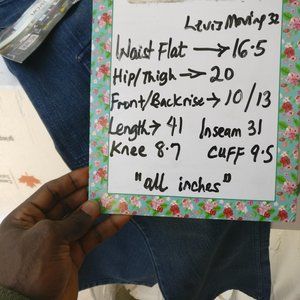 Levi's Moving 32
Waist Flat → 16.5
Hip/Thigh → 20
Front/Backrise → 10/13
Length → 41 Inseam 31
Knee 8.7 Cuff 9.5
"all inches"